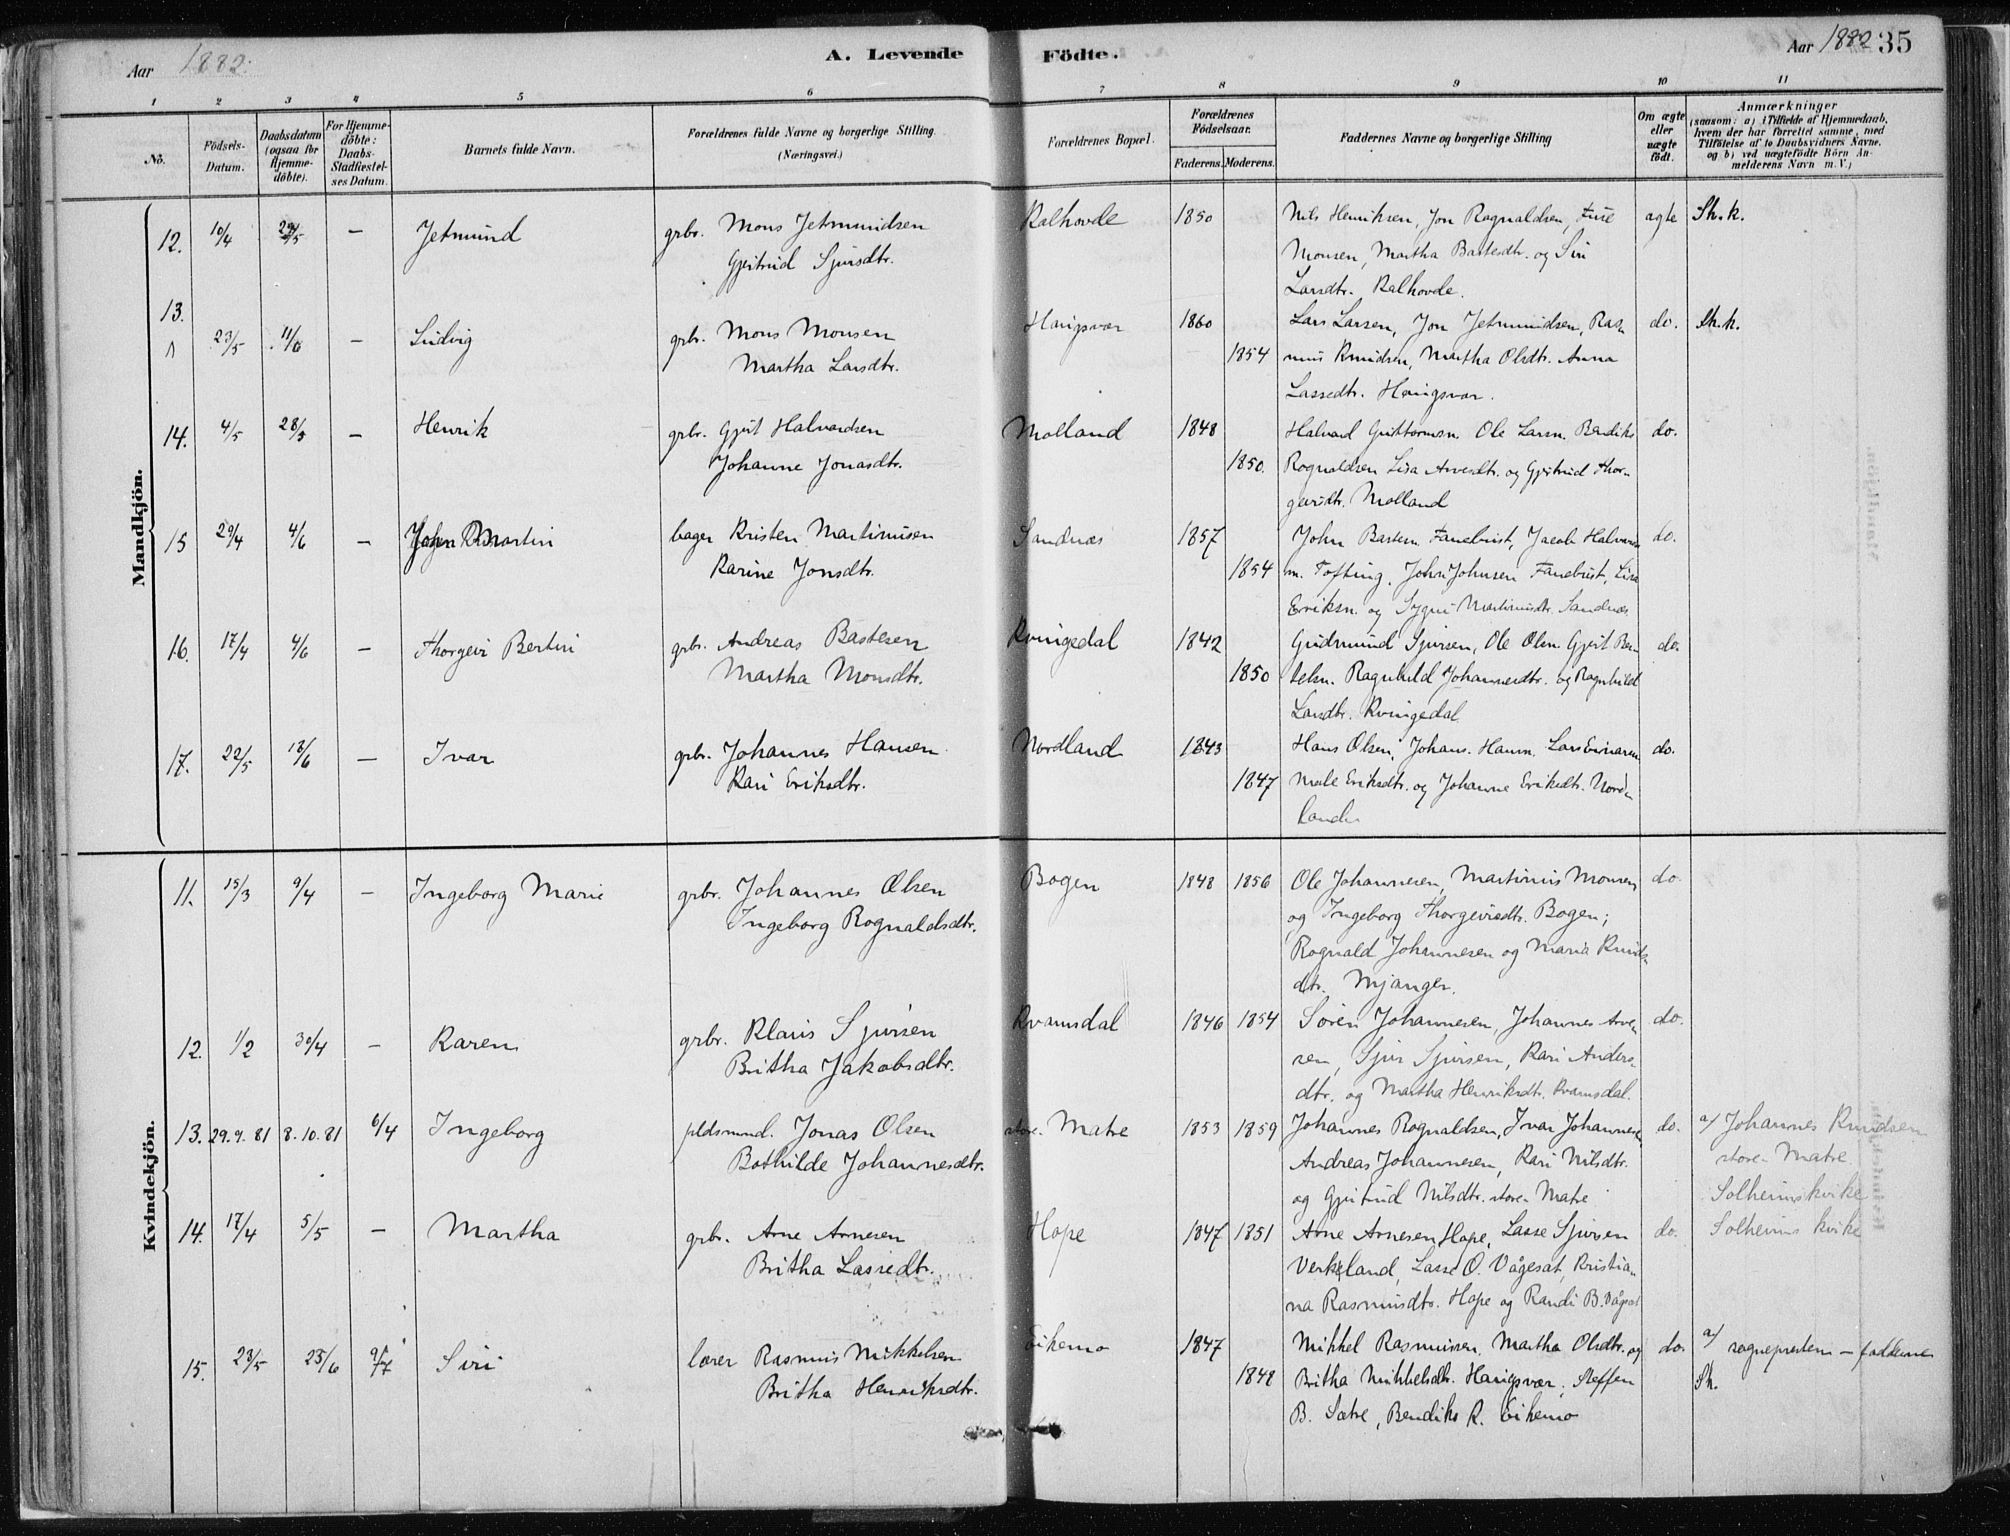 Aar 1882.
A. Levende
Födte.
Aar 1882 35
1 2 3 4 5 6 7 8 9 10 11
Nō.
Födsels-Datum.
Daabsdatum (ogsaa for Hjemmedöbte).
For Hjemmedöbte: Daabs-Stadfæstelses Datum.
Barnets fulde Navn.
Forældrenes fulde Navne og borgerlige Stilling. (Næringsvei.)
Forældrenes Bopæl.
Forældrenes Födselsaar.
Faderens. Moderens.
Faddernes Navne og borgerlige Stilling
Om ægte eller uægte födt.
Anmærkninger
(saasom: a) i Tilfælde af Hjemmedaab, hvem der har forrettet samme, med Tilföielse af to Daabsvidners Navne, og b) ved uægtefödte Börn Anmelderens Navn m.V.)
Mandkjön.
12. 10/4 29/5 — Jetmund grbr. Mons Jetmundsen Kalhovde 1850 Nils Henriksen, Jon Rognaldsen, agte Sh.k.
Gjertrud Sjursdtr. Monsen, Martha Bastesdtr. og Siri
Larsdtr. Kalhovde.
13. 23/5 11/6 — Ludvig grbr. Mons Monsen Haugsvær 1860 Lars Larsen, Jon Jetmundsen, Ras- do. Sh.k.
Martha Larsdtr. 1854 mus Knudsen, Martha Olsdtr. Anna
Lassedtr. Haugsvær.
14. 4/5 28/5 — Henrik grbr. Gjert Halvardsen Molland 1848 Halvard Guttormsn. Ole Larsn. Bendiks do.
Johanne Jonasdtr. 1850. Rognaldsen Lisa Arvesdtr. og Gjertrud Thor-
geirsdtr. Molland
15 29/4 4/6 — Martin bager Kristen Martinusen Sandnæs 1857 John Bastesn. Fanebust, Jacob Halvards do.
Karine Jonsdtr. 1854 sn. Tofting, John Johnsen Fanebust, Lisa
Eriksn. og Sygni Martinusdtr. Sandnæs
16. 17/4 4/6 — Thorgeir Bertin grbr. Andreas Bastesen Kvingedal 1842 Gudmund Sjursen, Ole Olsn. Gjert Ber- do.
Martha Monsdtr. 1850 telsn. Ragnhild Johannesdtr. og Ragnhild
Larsdtr. Kvingedal
17. 22/5 18/6 — Ivar grbr. Johannes Hansen Nordland 1843 Hans Olsen, Johans. Hansn. Lars Einarsn do.
Kari Eriksdtr. 1847 Male Eriksdtr. og Johanne Eriksdtr. Nord-
land
Kvindekjön.
11. 15/3 9/4 — Ingeborg Marie grbr. Johannes Olsen Bogen 1848 1856 Ole Johannesen, Martinus Monsen do.
Ingeborg Rognaldsdtr. og Ingeborg Thorgeirsdtr. Bogen;
Rognald Johannesen og Maria Knuds-
dtr. Mjanger.
12. 1/2 30/4 — Karen grbr. Klaus Sjursen Kvamsdal 1846 1854 Sören Johannesen, Johannes Arve- do.
Britha Jakobsdtr. sen, Sjur Sjursen, Kari Anders-
dtr. og Martha Henriksdtr. Kvamsdal.
13. 29.9.81 8.10.81 6/4 Ingeborg pldsmnd. Jonas Olsen store-Matre 1853 1859 Johannes Rognaldsen, Ivar Johannesen do. a/ Johannes Knudsen
Bothilde Johannesdtr. Andreas Johannesen, Kari Nilsdtr. store-Matre
og Gjertrud Nilsdtr. store-Matre Solheimskvike
14. 17/4 5/5 — Martha grbr. Arne Arnesen Hope 1847 1851 Arne Arnesen Hope, Lasse Sjursen do. Solheims kvike
Britha Lassedtr. Verkland, Lasse O. Vågesæt, Kristia-
na Rasmusdtr. Hope og Randi B. Vågesæt
15. 23/5 25/6 9/7 Siri lærer Rasmus Mikkelsen Eikemo 1847 Mikkel Rasmussen, Martha Olsdtr. og do. a/ sogneprestem — fadderne
Britha Henriksdtr. 1848 Britha Mikkelsdtr. Haugsvær, Steffen Sh.
B. Sætre, Bendiks R. Eikemo